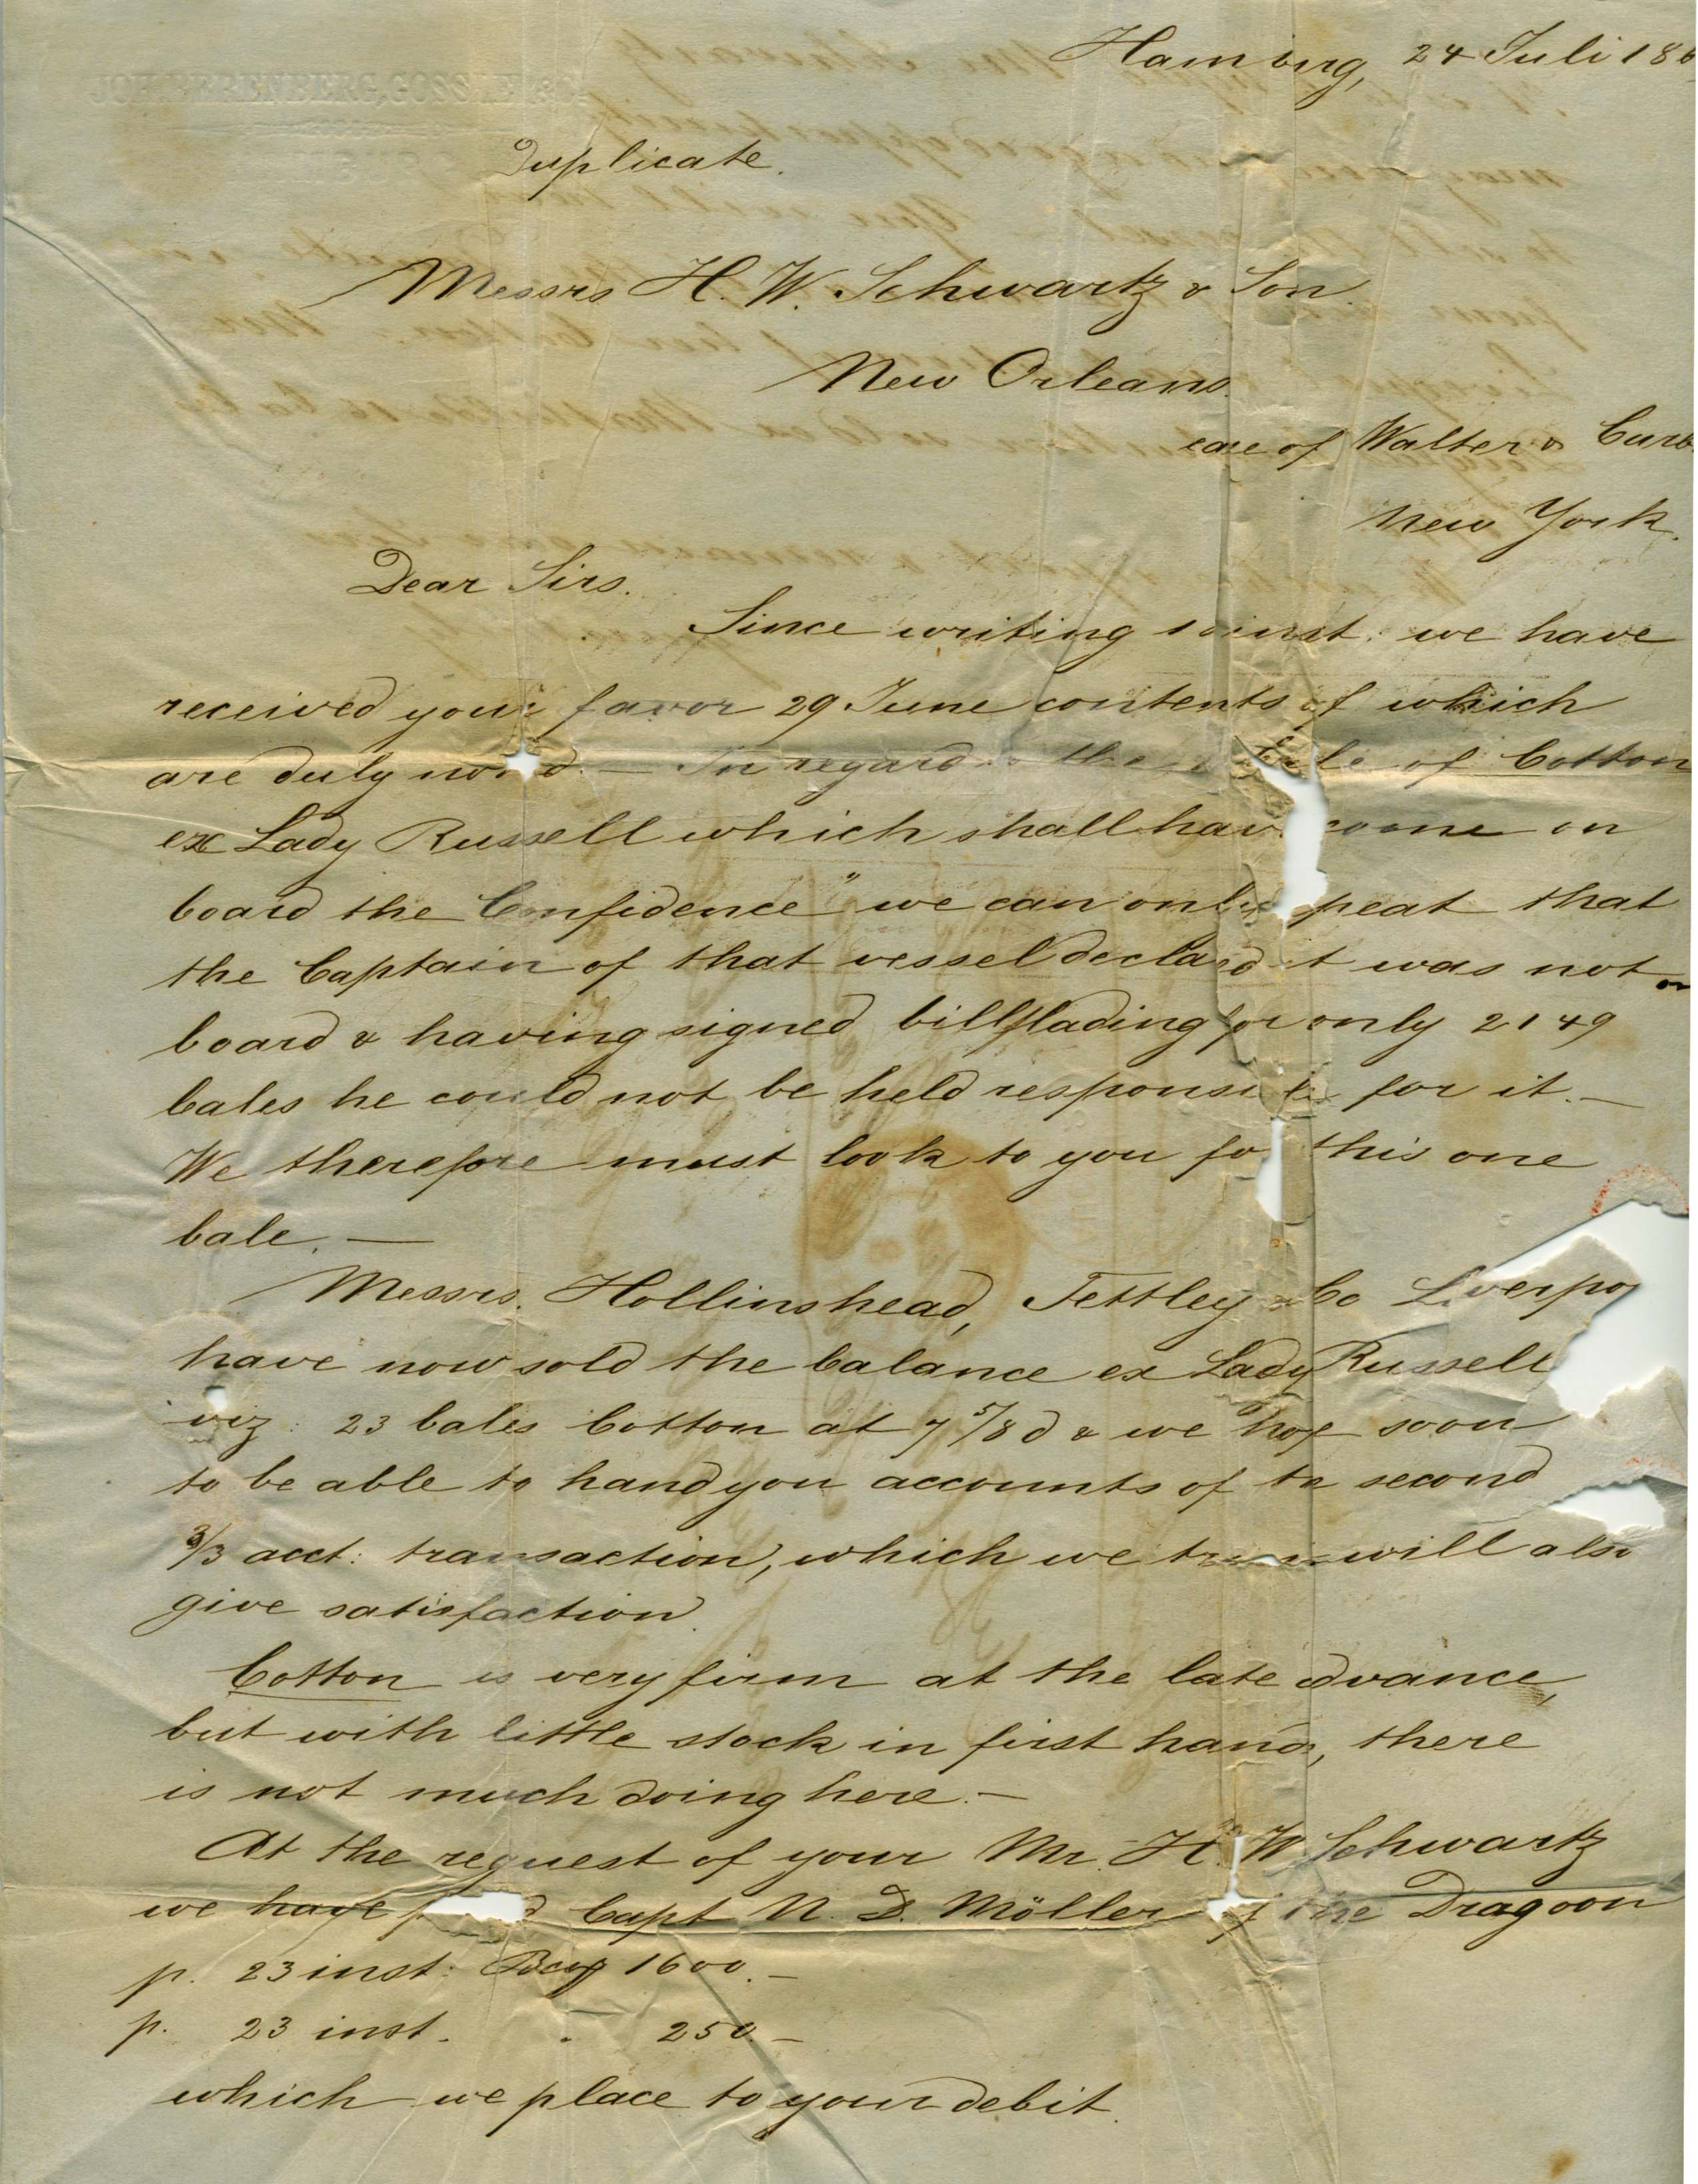 JOH. BERENBERG, GOSSLER & Co.
Hamburg, 24 Juli 186
Duplicate.
Messrs H. W. Schwartz & Son.
New Orleans.
care of Walter &
New York.
Dear Sirs.
Since writing inst. we have
received your favor 29 June contents of which
are duly noted. — In regard to the bale of Cotton
ex Lady Russell which shall have come on
board the Confidence" we can only repeat that
the Captain of that vessel declared it was not on
board & having signed bill lading for only 2149
bales he could not be held responsible for it. —
We therefore must look to you for this one
bale. —
Messrs. Hollinshead, Tettley & Co Liverpo
have now sold the balance ex Lady Russell
viz: 23 bales Cotton at 7 5/8 d & we hope soon
to be able to hand you accounts of the second
3/3 acct: transaction, which we will also
give satisfaction.
Cotton is very firm at the late advance,
but with little stock in first hands, there
is not much doing here. —
At the request of your Mr. H. W. Schwartz
we have Capt N. D. Möller of the Dragoon
p. 23 inst: Bco 1600. —
p. 23 inst. " 250. —
which we place to your debit.